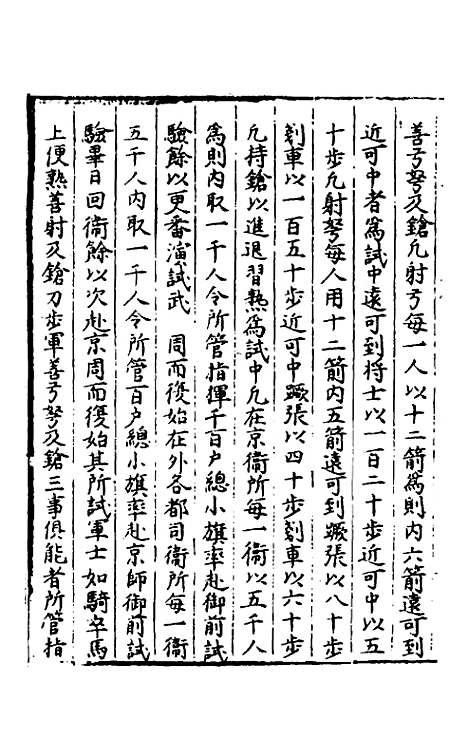 善弓弩及鎗凡射弓每一人以十二箭爲則内六箭遠可到
近可中者爲試中遠可到将士以一百二十步近可中以五
十步凡射弩每人用十二箭内五箭遠可到蹶張以八十步
劃車以一百五十步近可中蹶張以四十步劃車以六十步
凡持鎗以進退習熟爲試中凡在京衛所每一衛以五千人
爲則内取一千人令所管指揮千百户總小旗率赴御前試
驗餘以更番演試武　周而復始在外各都司衛所每一衛
五千人内取一千人令所管百户總小旗率赴京師御前試
驗畢日回衛餘以次赴京周而復始其所試軍士如騎卒馬
上便熟善射及鎗刀步軍善弓弩及鎗三事俱能者所管指